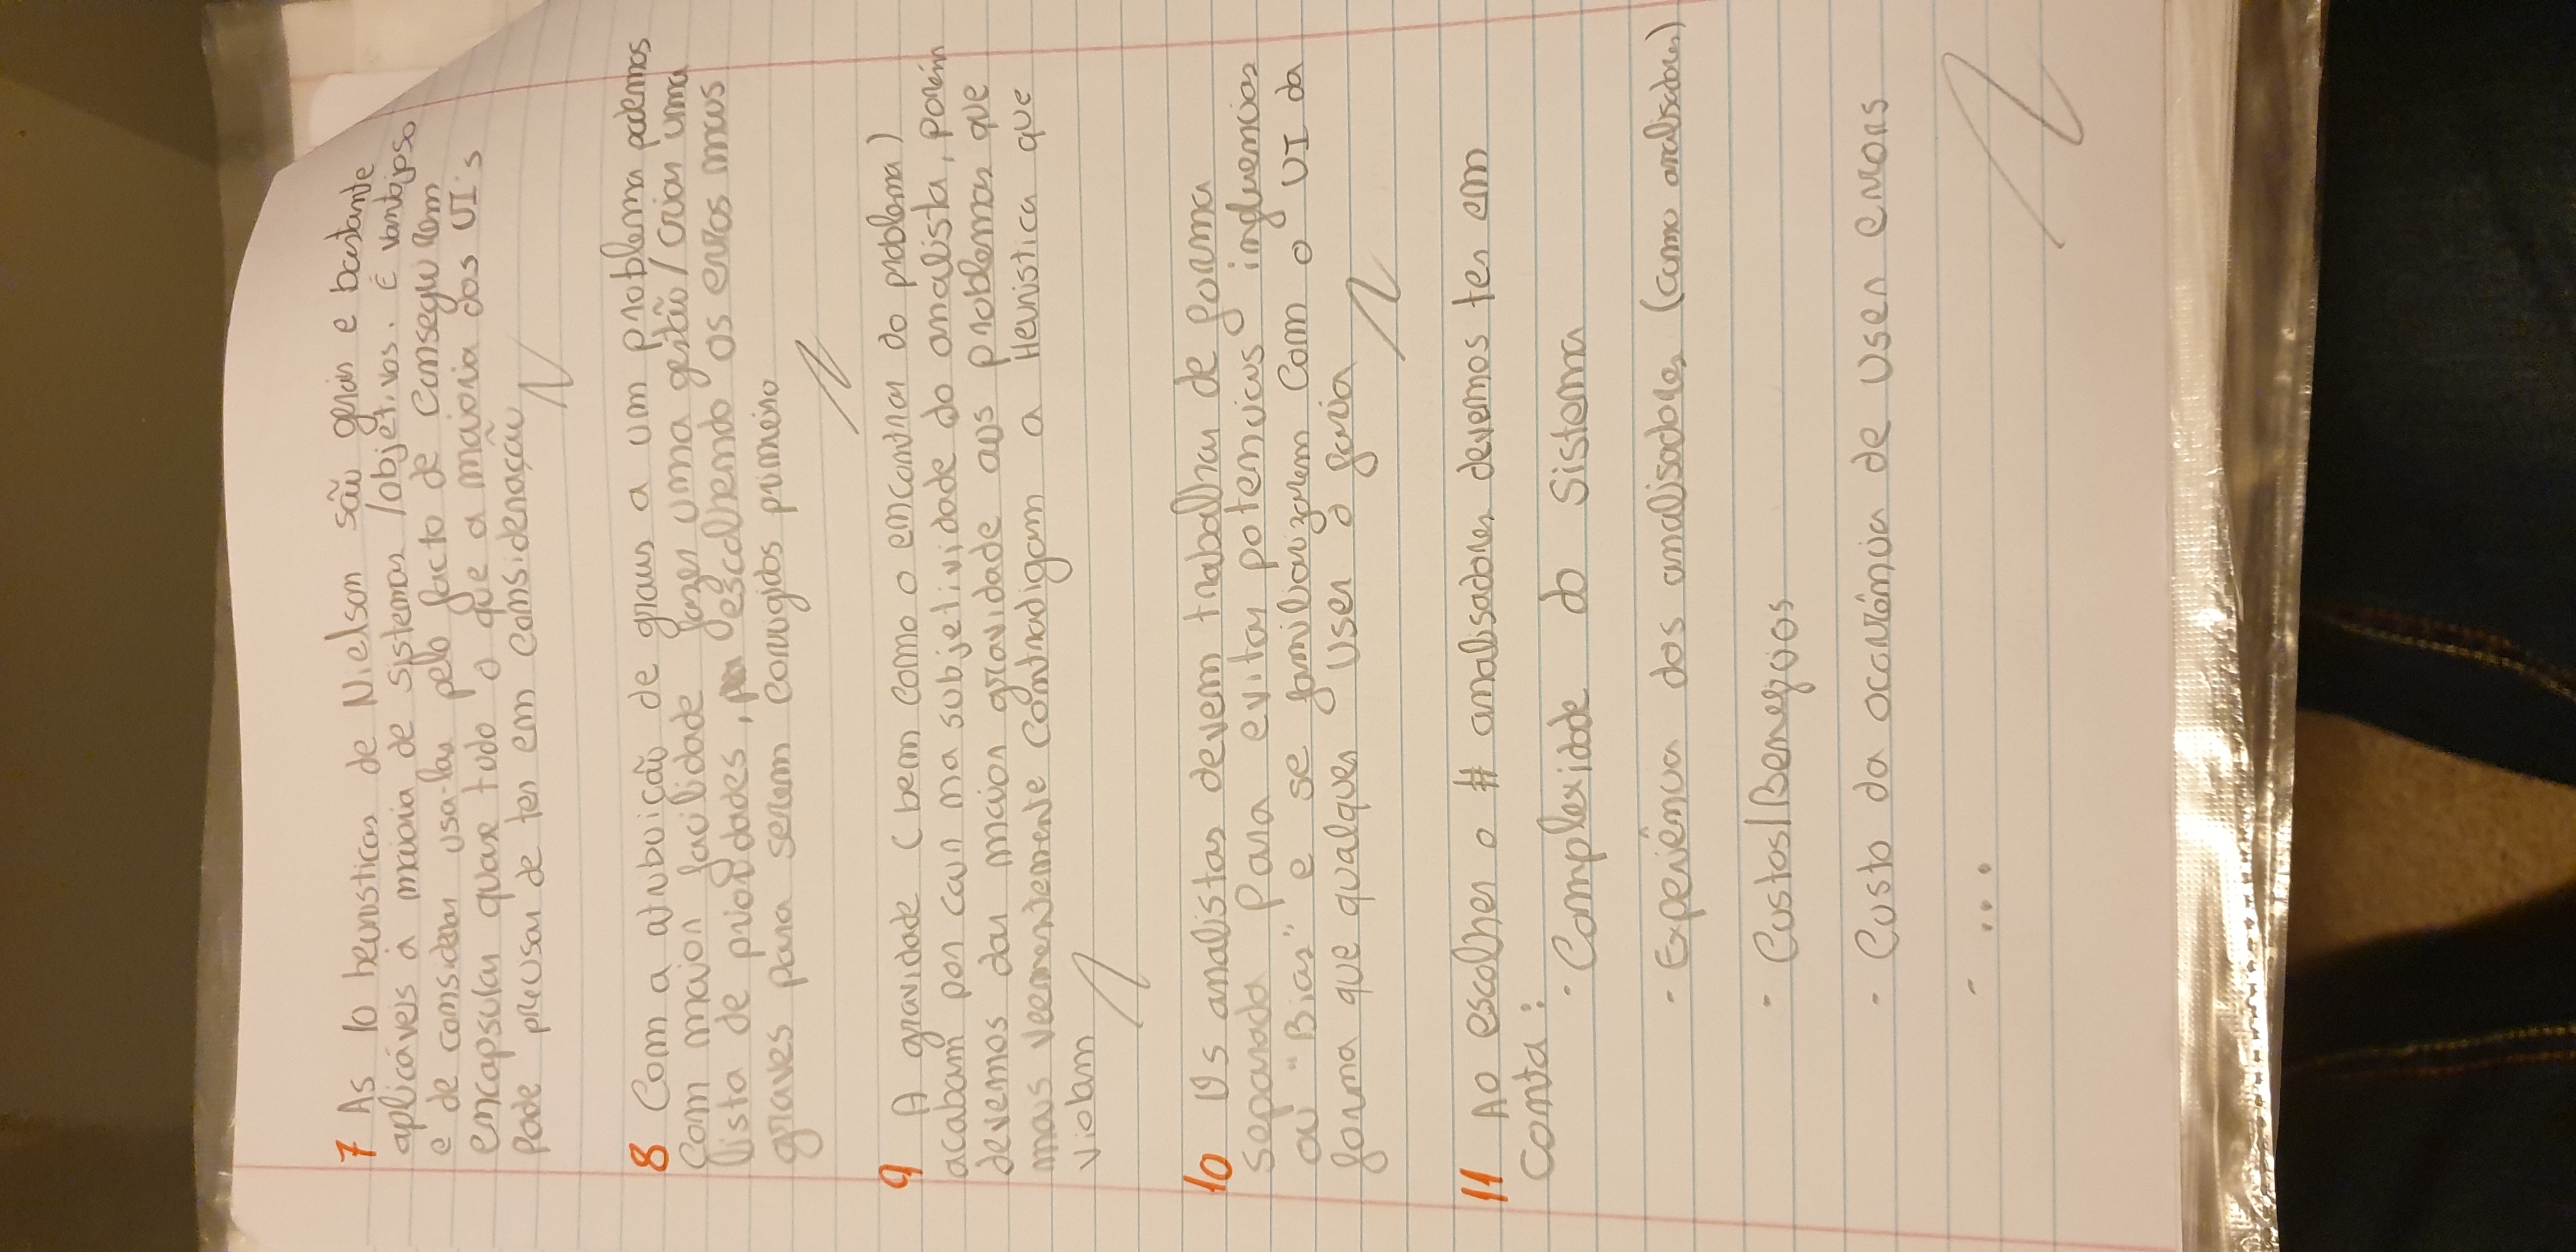 7 As 10 heuristicas de Nielson são gerais e bastante
aplicáveis à maioria de sistemas /objetivos. É vantajoso
e de considerar usa-las pelo facto de conseguirem
encapsular quase tudo o que a maioria dos UI's
pode precisar de ter em consideração
8 Com a atribuição de graus a um problema podemos
com maior facilidade fazer uma gestão / criar uma
lista de prioridades, escolhendo os erros mais
graves para serem corrigidos primeiro
9 A gravidade (bem como o encontrar do problema)
acabam por cair na subjetividade do analista, porém
devemos dar maior gravidade aos problemas que
mais veementemente contradigam a Heuristica que
violam
10 Os analistas devem trabalhar de forma
separada para evitar potenciais influencias
ou "Bias" e se familiarizarem com o UI da
forma que qualquer user o faria
11 Ao escolher o # analisadores devemos ter em
conta:
- Complexidade do sistema
- Experiência dos analisadores (como analisadores)
- Custos/Beneficios
- Custo da ocorrência de user errors
- ...